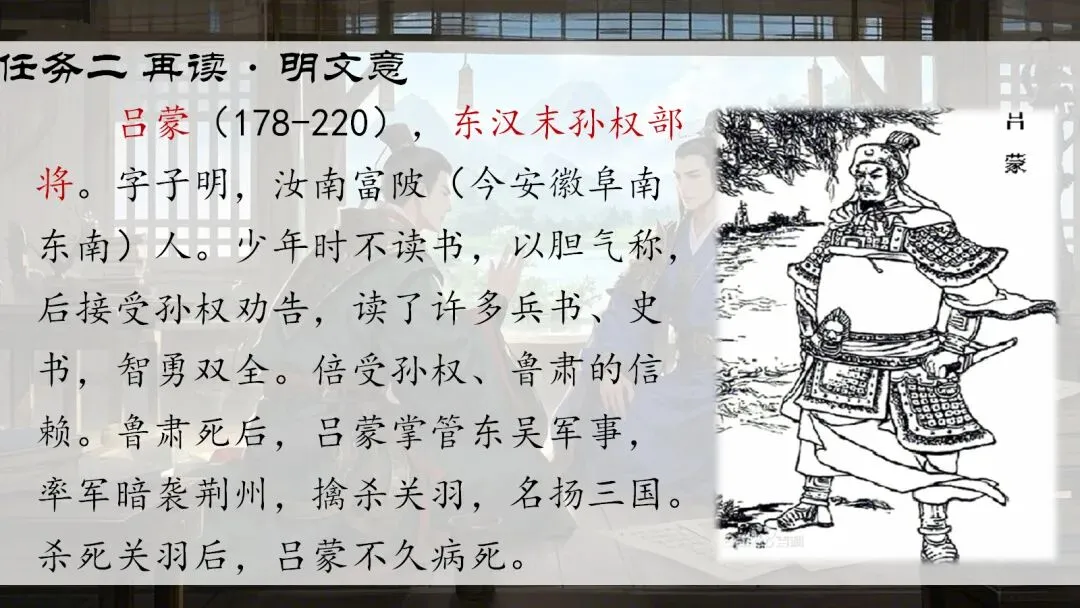 任务二 再读·明文意
吕蒙（178-220），东汉末孙权部
将。字子明，汝南富陂（今安徽阜南
东南）人。少年时不读书，以胆气称，
后接受孙权劝告，读了许多兵书、史
书，智勇双全。倍受孙权、鲁肃的信
赖。鲁肃死后，吕蒙掌管东吴军事，
率军暗袭荆州，擒杀关羽，名扬三国。
杀死关羽后，吕蒙不久病死。
蒙